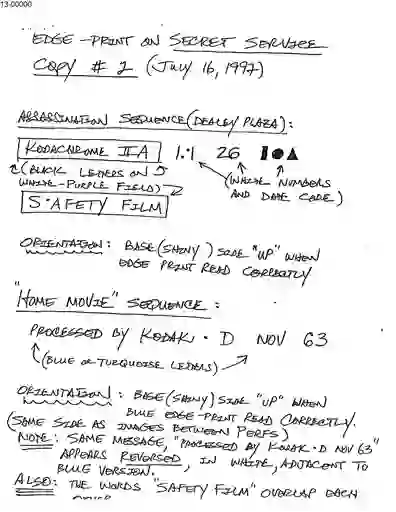 13-00000
EDGE-PRINT ON SECRET SERVICE
COPY # 2 (JULY 16, 1997)
ASSASSINATION SEQUENCE (DEALEY PLAZA):
KODACHROME IIA 1.1 26 ▮●▲
(BLACK LETTERS ON
WHITE-PURPLE FIELD)
(WHITE NUMBERS
AND DATE CODE)
S·AFETY FILM
ORIENTATION: BASE (SHINY) SIDE "UP" WHEN
EDGE PRINT READ CORRECTLY
"HOME MOVIE" SEQUENCE:
PROCESSED BY KODAK · D NOV 63
(BLUE OR TURQUOISE LETTERS)
ORIENTATION: BASE (SHINY) SIDE "UP" WHEN
BLUE EDGE-PRINT READ CORRECTLY.
(SAME SIDE AS IMAGES BETWEEN PERFS)
NOTE: SAME MESSAGE, "PROCESSED BY KODAK · D NOV 63"
APPEARS REVERSED, IN WHITE, ADJACENT TO
BLUE VERSION.
ALSO: THE WORDS "SAFETY FILM" OVERLAP EACH